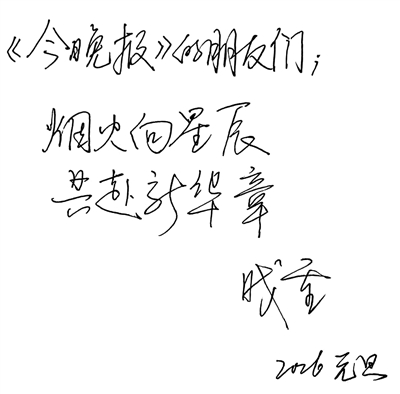 《今晚报》的朋友们；
烟火向星辰
共赴新华章
2026 元旦